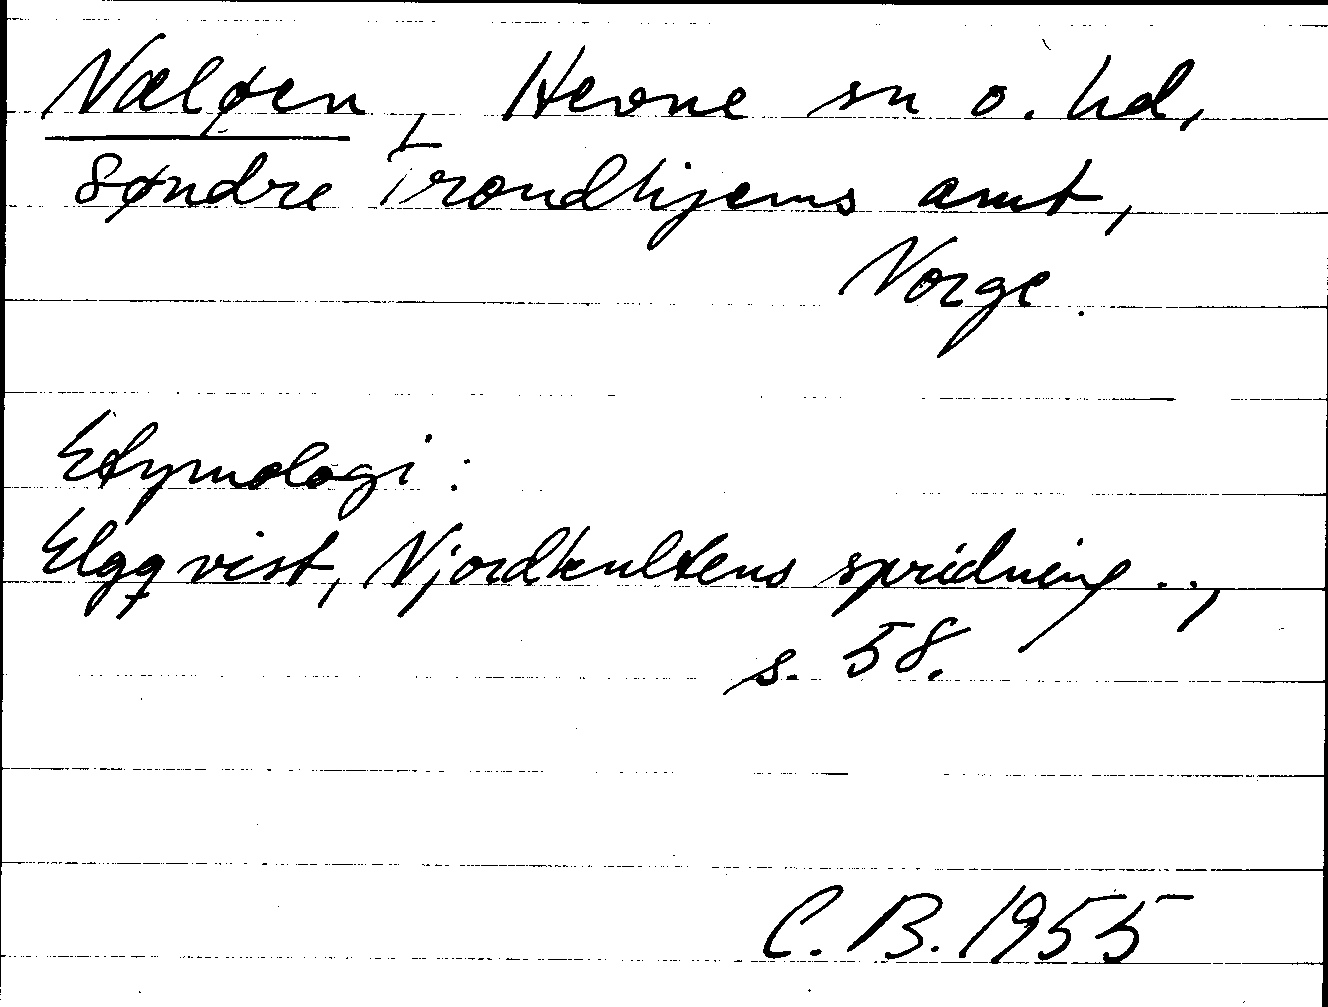 Næløen, Hevne sn o. hd,
Søndre Trondhjems amt,
Norge.
Etymologi:
Elgqvist, Njordkultens spridning..,
s. 58.
C. B. 1955